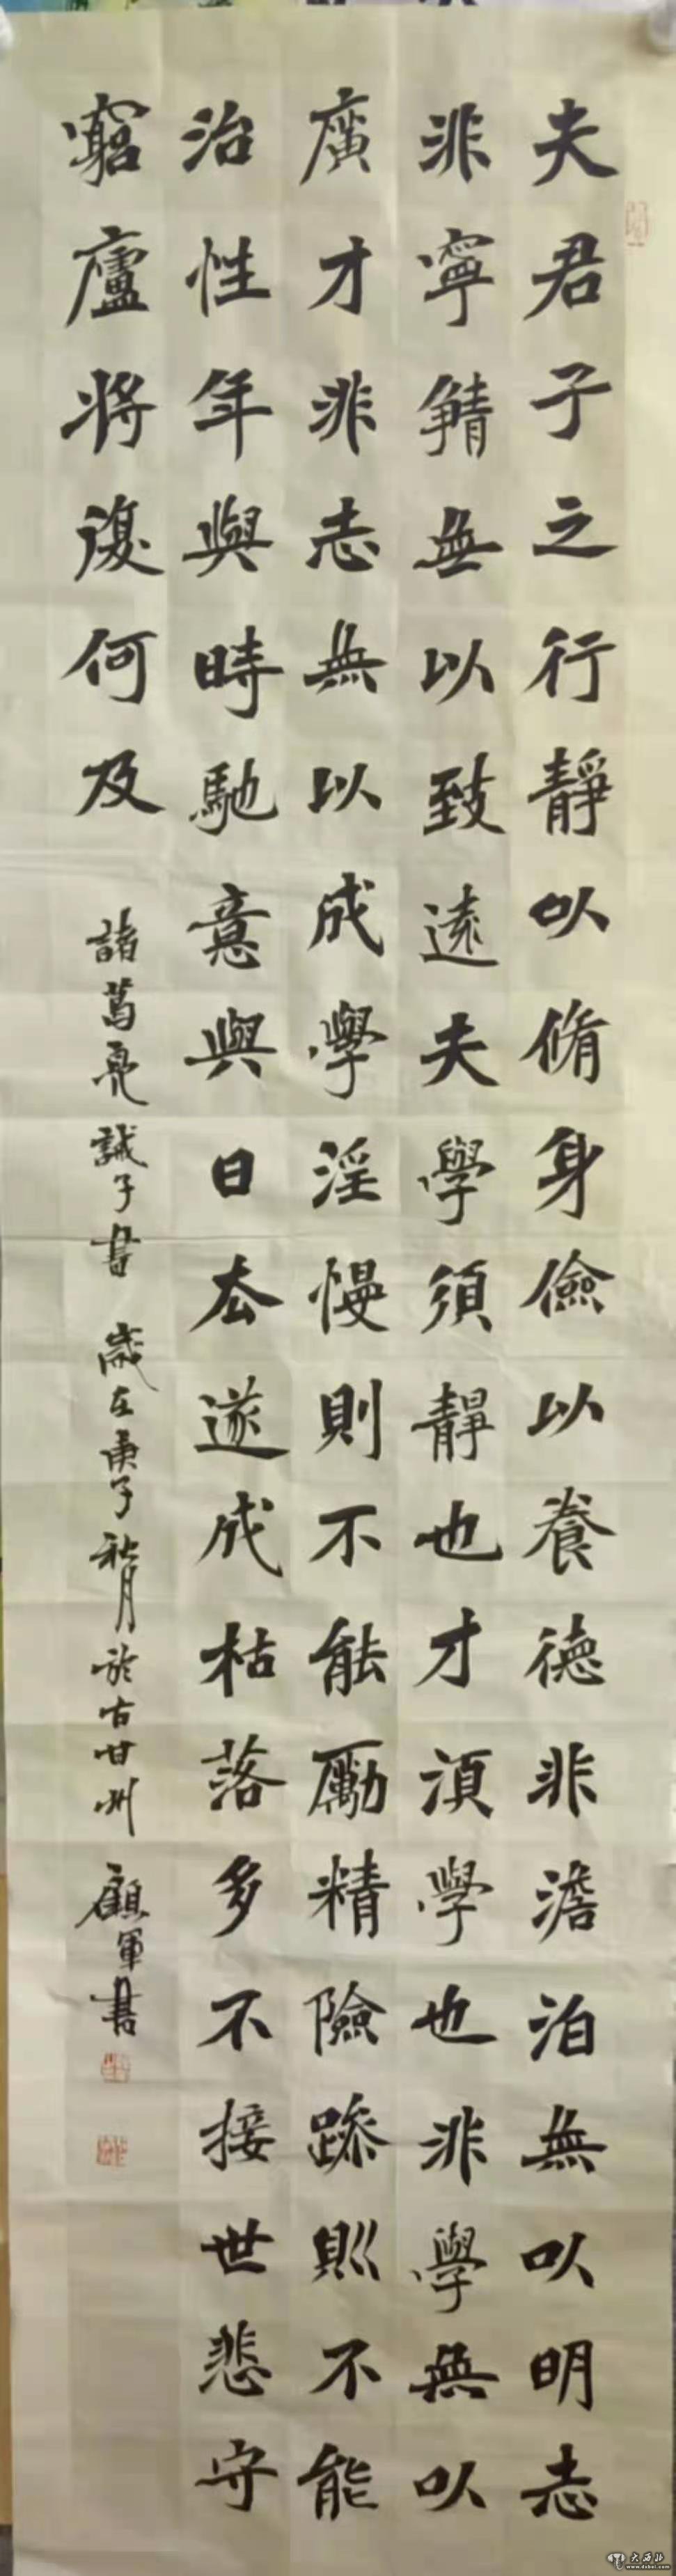 夫君子之行靜以脩身儉以養德非澹泊無以明志
非寧靜無以致遠夫學須靜也才須學也非學無以
廣才非志無以成學淫慢則不能勵精險躁則不能
治性年與時馳意與日去遂成枯落多不接世悲守
窮廬將復何及
諸葛亮誡子書 歲在庚子秋月於古甘州 顧軍書
大西北
www.dxbei.com